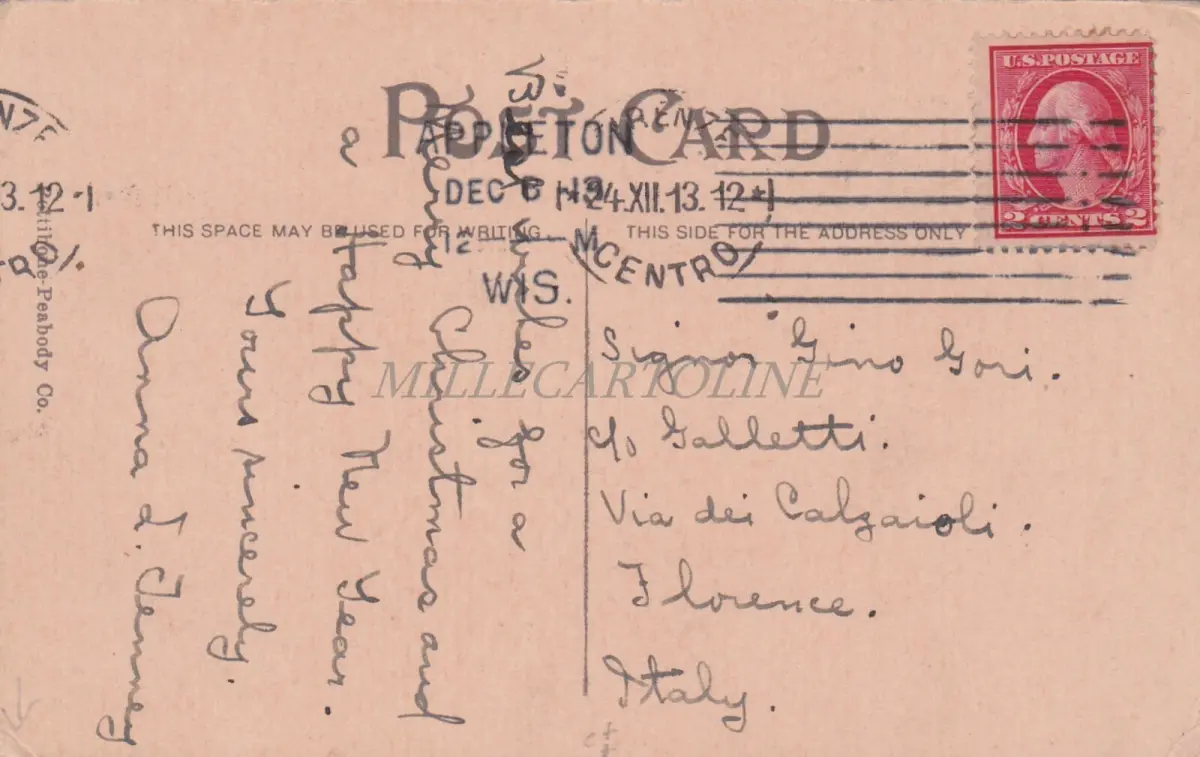 POST CARD
U.S. POSTAGE
2 CENTS 2
APPLETON
DEC 6
12 M
WIS.
24.XII.13.12-1
CENTRO
3.12-1
THIS SPACE MAY BE USED FOR WRITING
THIS SIDE FOR THE ADDRESS ONLY
-Peabody Co.
Best wishes for a
Merry Christmas and
a Happy New Year.
Yours sincerely.
Anna d. Tenney
Signor Gino Gori.
c/o Galletti.
Via dei Calzaioli.
Florence.
Italy.
MILLECARTOLINE